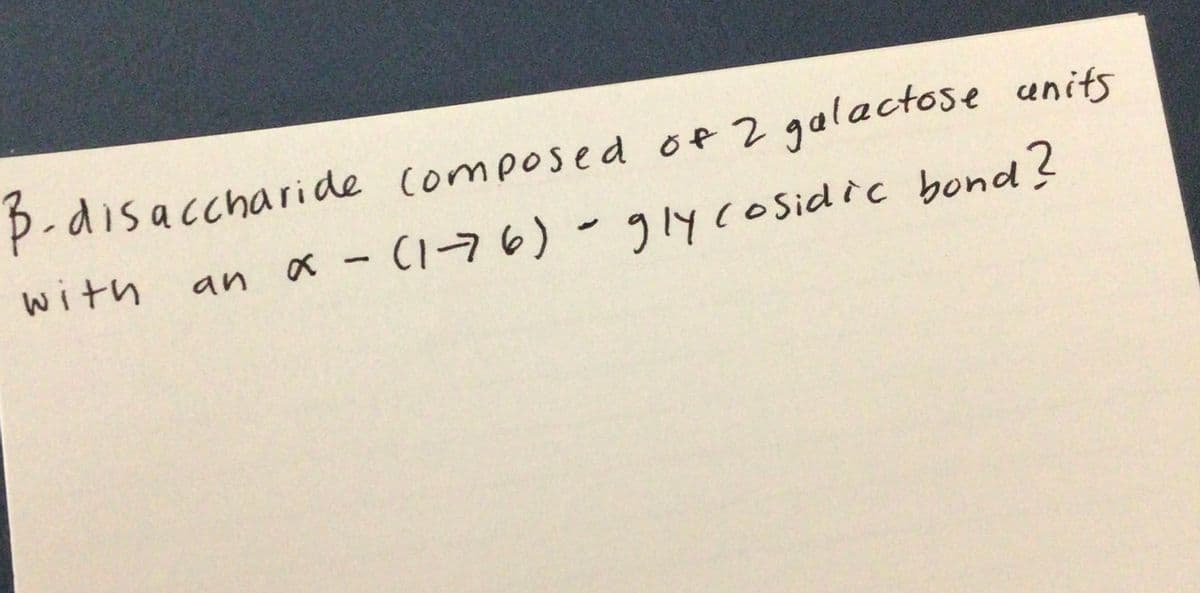 β-disaccharide composed of 2 galactose units
with an α - (1→6) - glycosidic bond?